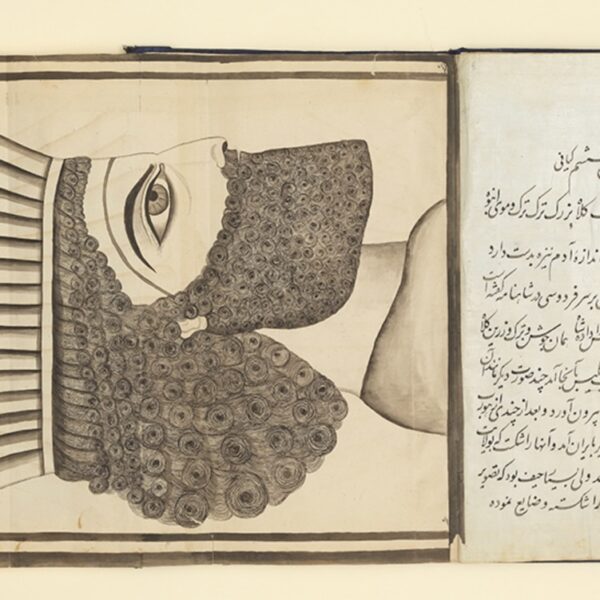 ششم کیانی
کلاه بزرگ ترک ترک و موی انبوه
اندازه آدم نیزه بدست دارد
بر سر فردوسی در شاهنامه گفته است
داده شا مان جوشن و ترک و زرین کلاه
آنجا آمد چند صورت دیگر مانند آن
بیرون آورد و بعد از چندی
بایران آمد و آنها را شکست که
ولی بسیا حیف بود که تصویر
را شکسته و ضایع نموده